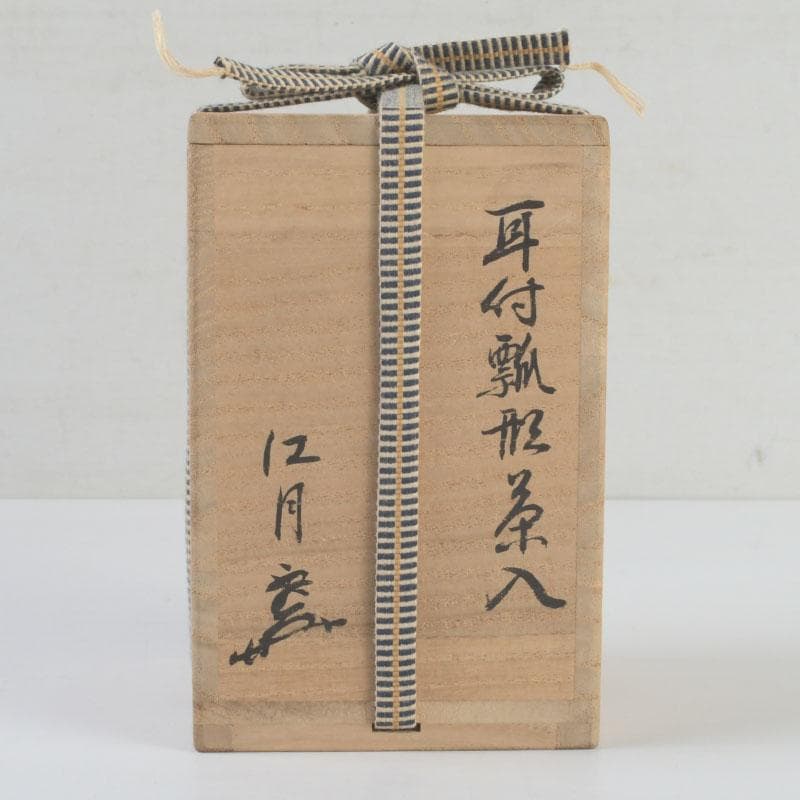 耳付瓢形茶入
江月窯